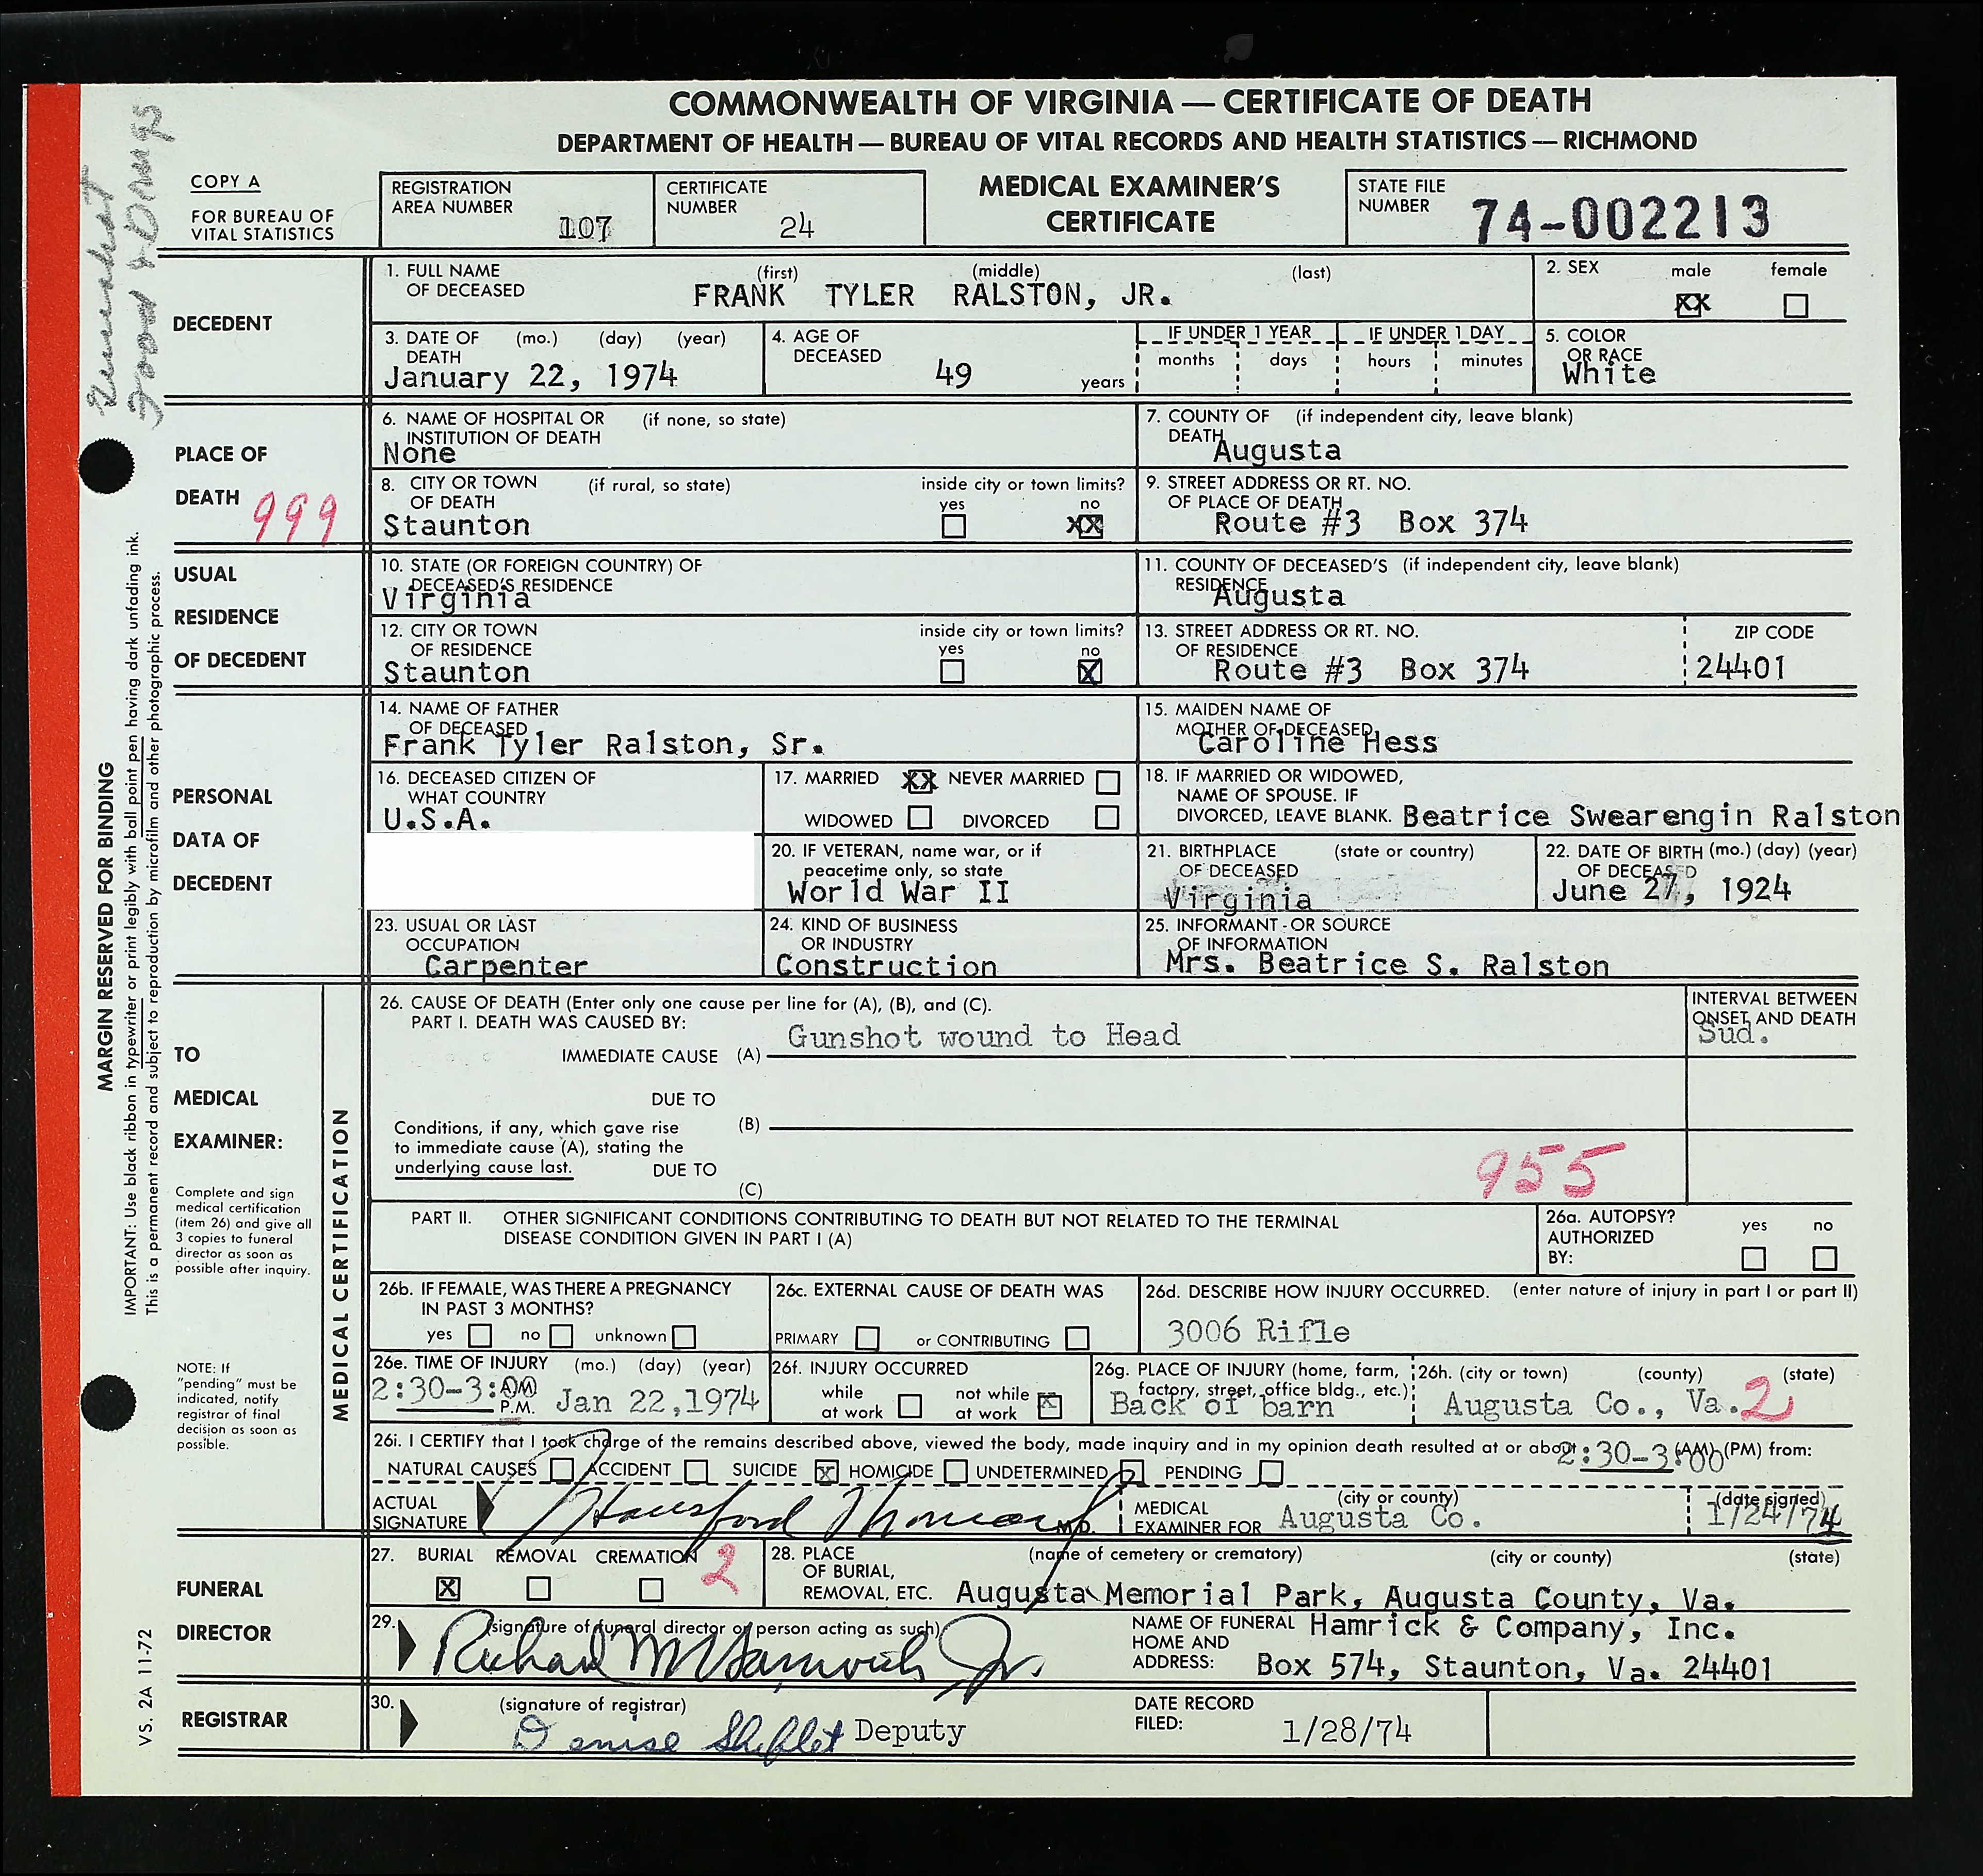 COMMONWEALTH OF VIRGINIA — CERTIFICATE OF DEATH
DEPARTMENT OF HEALTH — BUREAU OF VITAL RECORDS AND HEALTH STATISTICS — RICHMOND
COPY A
FOR BUREAU OF
VITAL STATISTICS
REGISTRATION
AREA NUMBER
107
CERTIFICATE
NUMBER
24
MEDICAL EXAMINER'S
CERTIFICATE
STATE FILE
NUMBER
74-002213
Food & Drugs
DECEDENT
1. FULL NAME (first) (middle) (last)
OF DECEASED
FRANK TYLER RALSTON, JR.
2. SEX male female
XX
3. DATE OF (mo.) (day) (year)
DEATH
January 22, 1974
4. AGE OF
DECEASED
49 years
IF UNDER 1 YEAR
months days
IF UNDER 1 DAY
hours minutes
5. COLOR
OR RACE
White
PLACE OF
DEATH
999
6. NAME OF HOSPITAL OR (if none, so state)
INSTITUTION OF DEATH
None
7. COUNTY OF (if independent city, leave blank)
DEATH
Augusta
8. CITY OR TOWN (if rural, so state)
OF DEATH
Staunton
inside city or town limits?
yes no
XX
9. STREET ADDRESS OR RT. NO.
OF PLACE OF DEATH
Route #3 Box 374
USUAL
RESIDENCE
OF DECEDENT
10. STATE (OR FOREIGN COUNTRY) OF
DECEASED'S RESIDENCE
Virginia
11. COUNTY OF DECEASED'S (if independent city, leave blank)
RESIDENCE
Augusta
12. CITY OR TOWN
OF RESIDENCE
Staunton
inside city or town limits?
yes no
X
13. STREET ADDRESS OR RT. NO.
OF RESIDENCE
Route #3 Box 374
ZIP CODE
24401
PERSONAL
DATA OF
DECEDENT
14. NAME OF FATHER
OF DECEASED
Frank Tyler Ralston, Sr.
15. MAIDEN NAME OF
MOTHER OF DECEASED
Caroline Hess
16. DECEASED CITIZEN OF
WHAT COUNTRY
U.S.A.
17. MARRIED XX NEVER MARRIED
WIDOWED DIVORCED
18. IF MARRIED OR WIDOWED,
NAME OF SPOUSE. IF
DIVORCED, LEAVE BLANK. Beatrice Swearengin Ralston
20. IF VETERAN, name war, or if
peacetime only, so state
World War II
21. BIRTHPLACE (state or country)
OF DECEASED
Virginia
22. DATE OF BIRTH (mo.) (day) (year)
OF DECEASED
June 27, 1924
23. USUAL OR LAST
OCCUPATION
Carpenter
24. KIND OF BUSINESS
OR INDUSTRY
Construction
25. INFORMANT - OR SOURCE
OF INFORMATION
Mrs. Beatrice S. Ralston
MARGIN RESERVED FOR BINDING
IMPORTANT: Use black ribbon in typewriter or print legibly with ball point pen having dark unfading ink.
This is a permanent record and subject to reproduction by microfilm and other photographic process.
TO
MEDICAL
EXAMINER:
Complete and sign
medical certification
(item 26) and give all
3 copies to funeral
director as soon as
possible after inquiry.
NOTE: If
"pending" must be
indicated, notify
registrar of final
decision as soon as
possible.
MEDICAL CERTIFICATION
26. CAUSE OF DEATH (Enter only one cause per line for (A), (B), and (C).
PART I. DEATH WAS CAUSED BY:
IMMEDIATE CAUSE (A) Gunshot wound to Head
INTERVAL BETWEEN
ONSET AND DEATH
Sud.
DUE TO
Conditions, if any, which gave rise (B)
to immediate cause (A), stating the
underlying cause last. DUE TO
(C)
955
PART II. OTHER SIGNIFICANT CONDITIONS CONTRIBUTING TO DEATH BUT NOT RELATED TO THE TERMINAL
DISEASE CONDITION GIVEN IN PART I (A)
26a. AUTOPSY? yes no
AUTHORIZED
BY:
26b. IF FEMALE, WAS THERE A PREGNANCY
IN PAST 3 MONTHS?
yes no unknown
26c. EXTERNAL CAUSE OF DEATH WAS
PRIMARY or CONTRIBUTING
26d. DESCRIBE HOW INJURY OCCURRED. (enter nature of injury in part I or part II)
3006 Rifle
26e. TIME OF INJURY (mo.) (day) (year)
2:30-3:00 A.M. P.M. Jan 22,1974
26f. INJURY OCCURRED
while
at work
not while
at work
X
26g. PLACE OF INJURY (home, farm,
factory, street, office bldg., etc.)
Back of barn
26h. (city or town) (county) (state)
Augusta Co., Va. 2
26i. I CERTIFY that I took charge of the remains described above, viewed the body, made inquiry and in my opinion death resulted at or about 2:30-3:00 (AM) (PM) from:
NATURAL CAUSES ACCIDENT SUICIDE X HOMICIDE UNDETERMINED PENDING
ACTUAL
SIGNATURE
M.D.
MEDICAL
EXAMINER FOR
(city or county)
Augusta Co.
(date signed)
1/24/74
FUNERAL
DIRECTOR
27. BURIAL REMOVAL CREMATION
X
2
28. PLACE (name of cemetery or crematory) (city or county) (state)
OF BURIAL,
REMOVAL, ETC. Augusta Memorial Park, Augusta County, Va.
29. (signature of funeral director or person acting as such)
Richard M Hamrick Jr.
NAME OF FUNERAL
HOME AND
ADDRESS:
Hamrick & Company, Inc.
Box 574, Staunton, Va. 24401
REGISTRAR
30. (signature of registrar)
Denise Shiflet Deputy
DATE RECORD
FILED:
1/28/74
VS. 2A 11-72